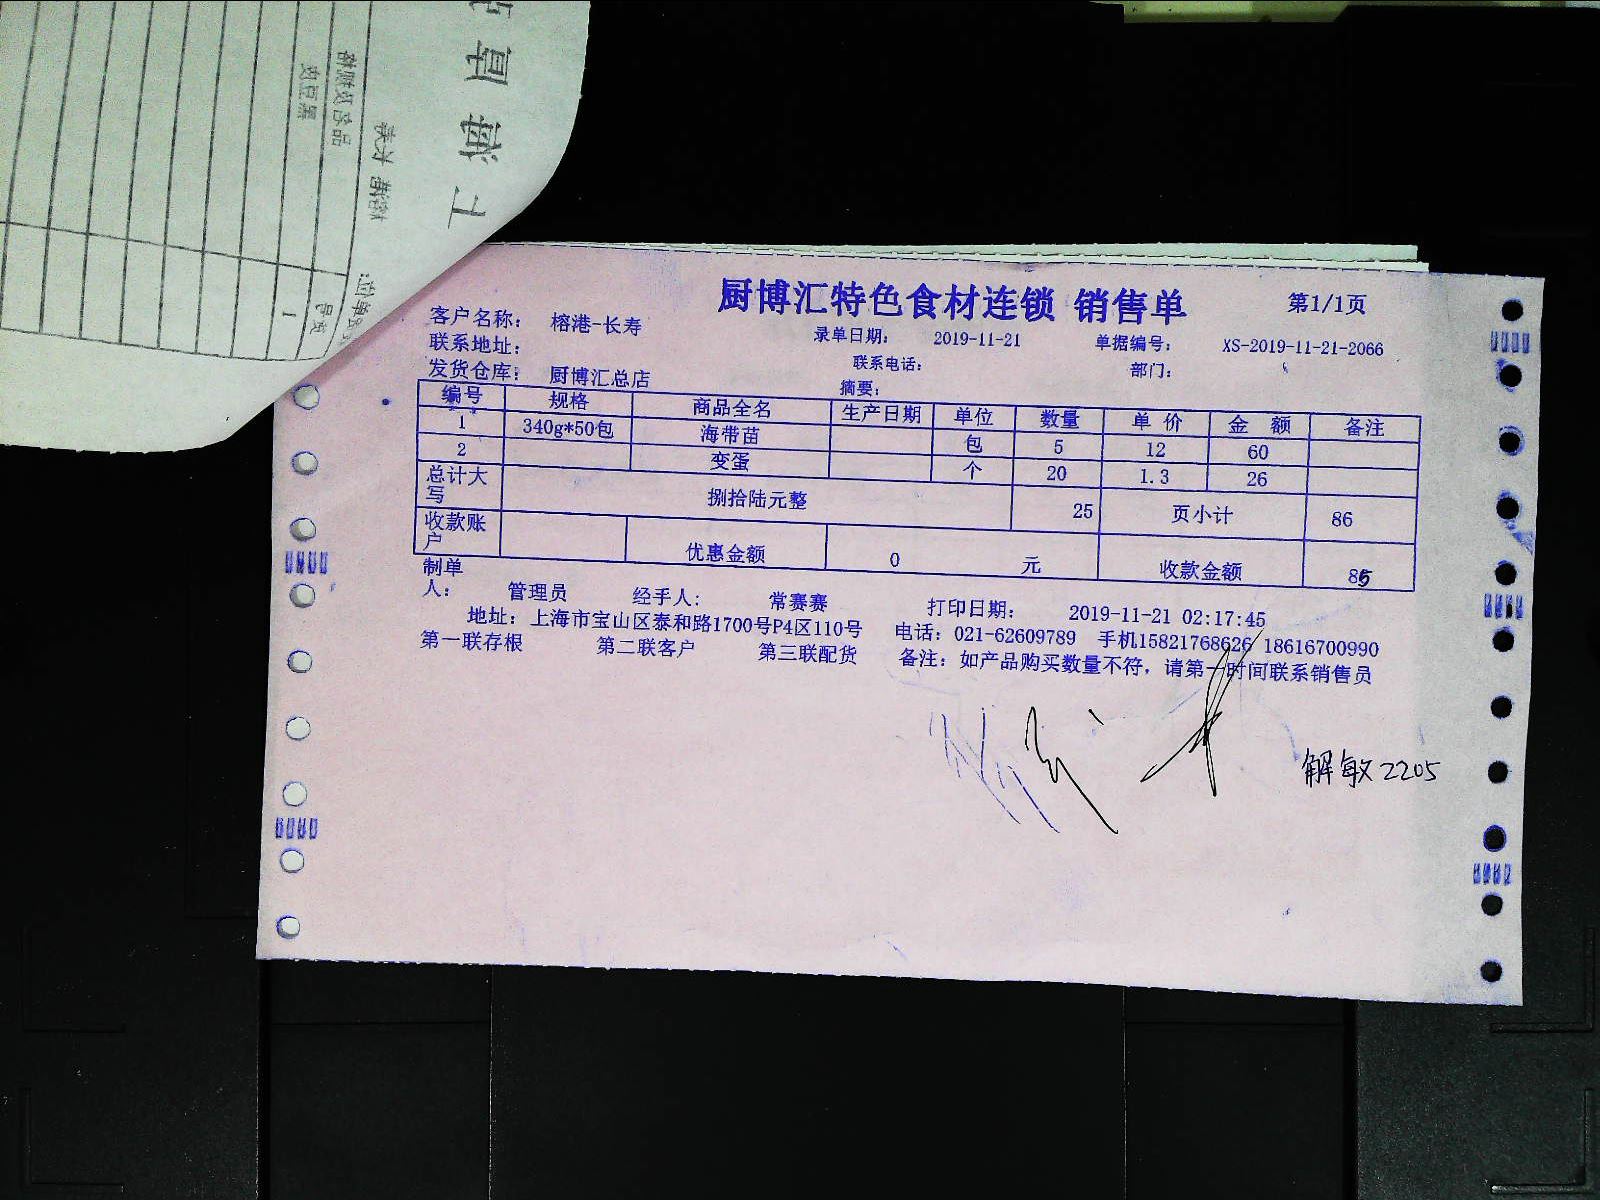 厨博汇特色食材连锁 销售单 第1/1页
客户名称： 榕港-长寿 录单日期： 2019-11-21 单据编号： XS-2019-11-21-2066
联系地址： 联系电话： 部门：
发货仓库： 厨博汇总店 摘要：
编号 规格 商品全名 生产日期 单位 数量 单价 金额 备注
1 340g*50包 海带苗 包 5 12 60
2 变蛋 个 20 1.3 26
总计大写 捌拾陆元整 25 页小计 86
收款账户 优惠金额 0 元 收款金额
制单人： 管理员 经手人： 常赛赛 打印日期： 2019-11-21 02:17:45
地址：上海市宝山区泰和路1700号P4区110号 电话：021-62609789 手机15821768626 18616700990
第一联存根 第二联客户 第三联配货 备注：如产品购买数量不符，请第一时间联系销售员
解敏2205